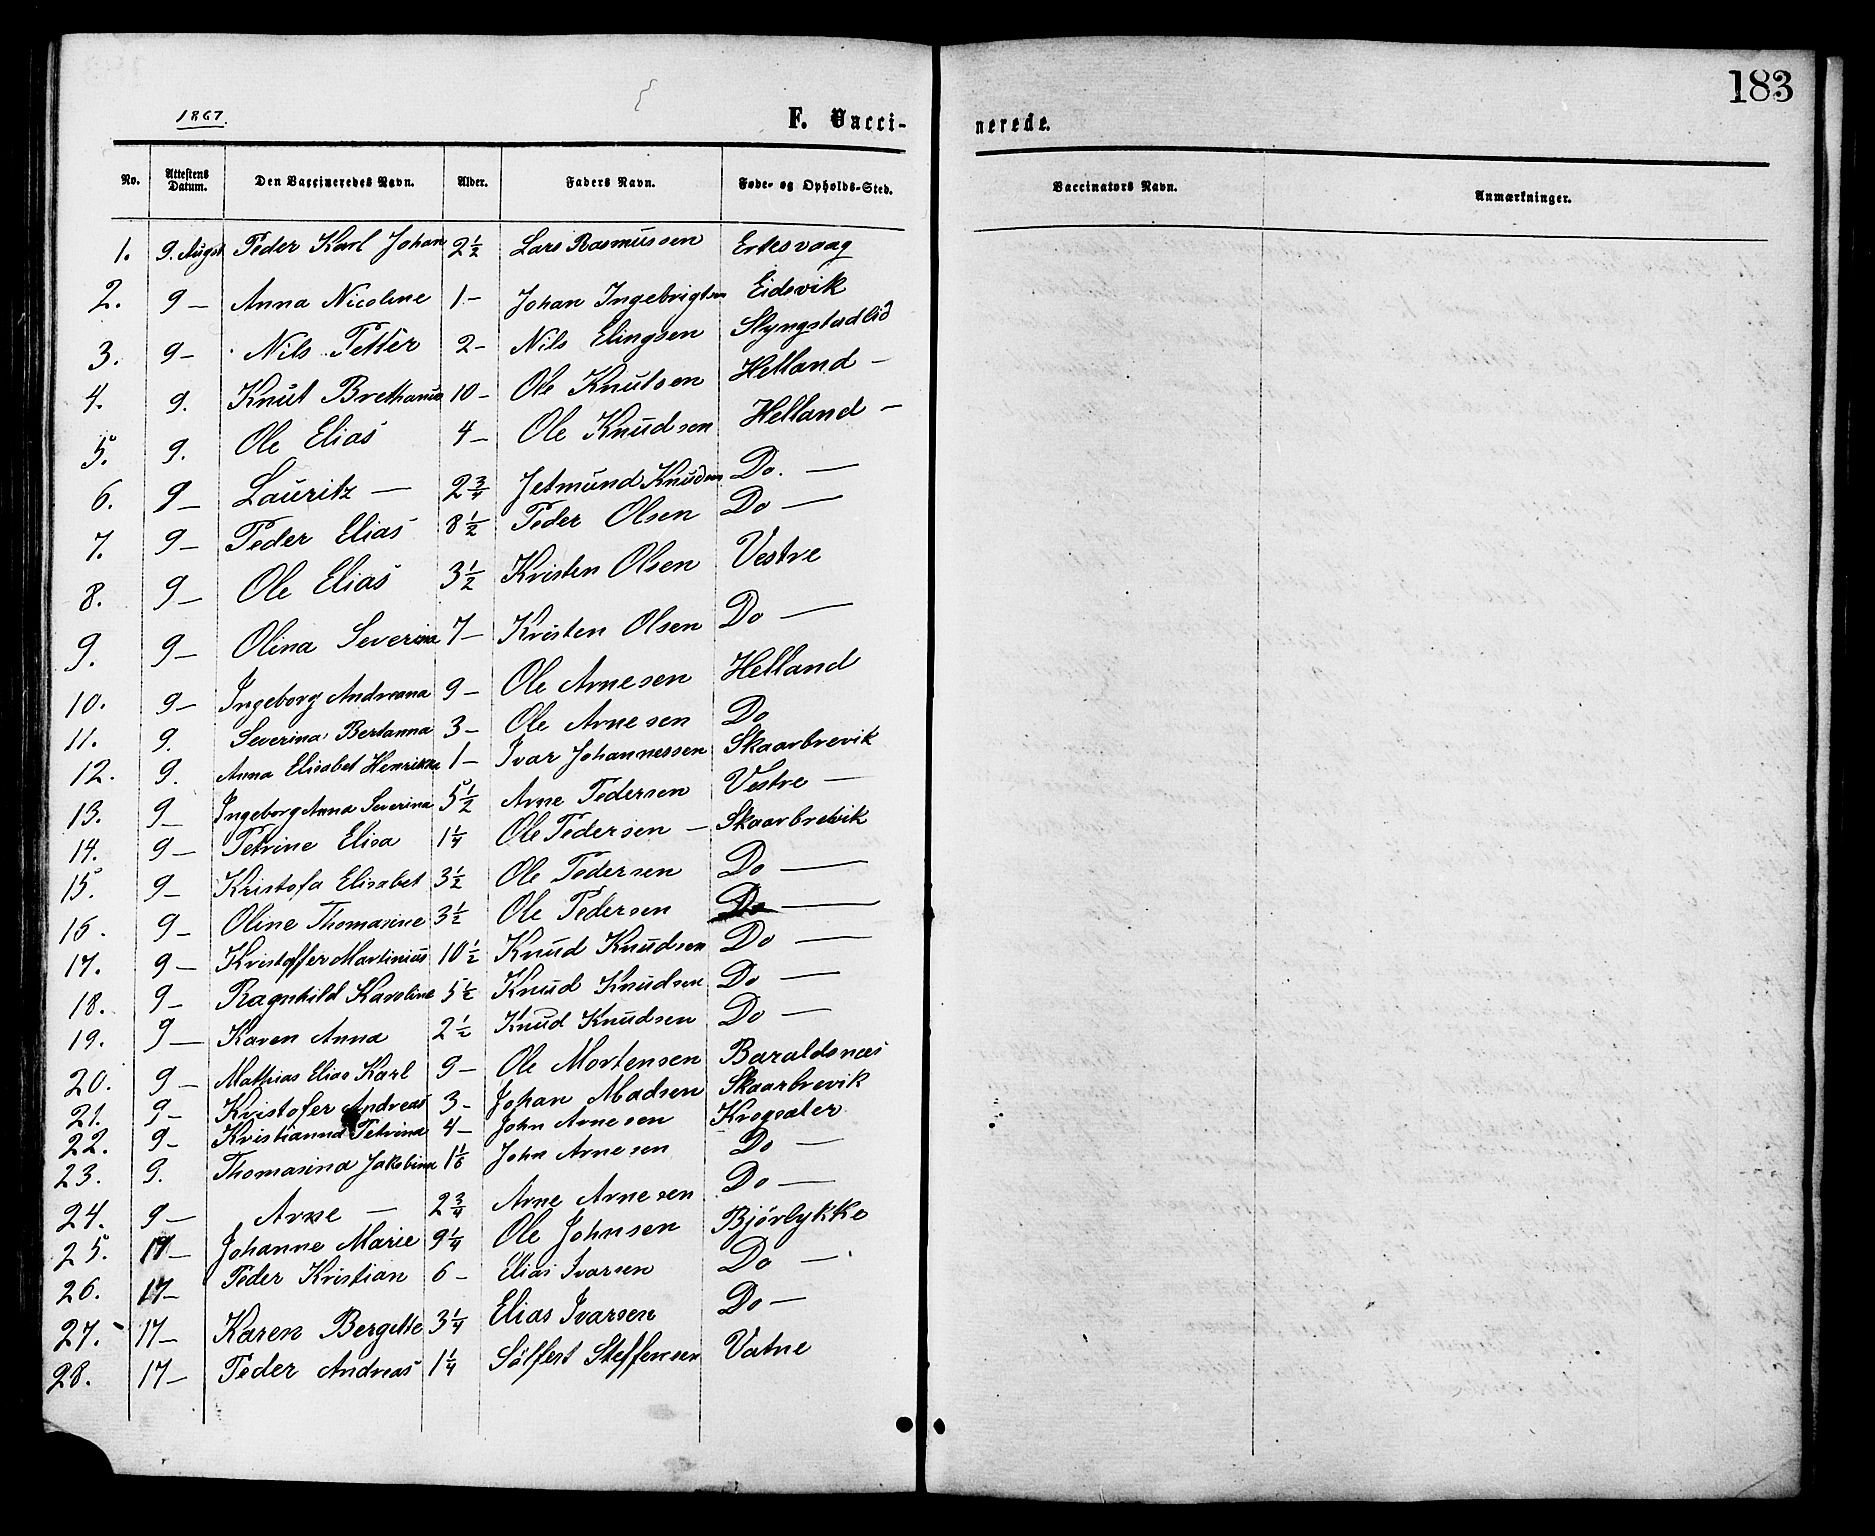 183
1867.
F. Vacci- nerede.
No. Attestens Datum. Den Vaccineredes Navn. Alder. Faders Navn. Føde- og Opholds-Sted. Vaccinators Navn. Anmærkninger.
1. 9. Augst Peder Karl Johan 2 1/2 Lars Rasmussen Erkesvaag
2. 9 — Anna Nicoline 1 - Johan Ingebrigtsen Eidsvik
3. 9 - Nils Petter 2 - Nils Elingsen Slyngstadlid
4. 9. Knut Brethanius 10 - Ole Knutsen Helland -
5. 9. Ole Elias 4 - Ole Knudsen Helland -
6. 9 - Lauritz — 2 3/4 Jetmund Knudsen Do. —
7. 9 - Peder Elias 8 1/2 Peder Olsen Do —
8. 9 - Ole Elias 3 1/2 Kristen Olsen Vestre
9. 9 - Olina Severina 7 - Kristen Olsen Do —
10. 9 - Ingeborg Andreana 9 - Ole Arnesen Helland
11. 9. Severina Bertanna 3 - Ole Arnesen Do
12. 9. Anna Elisabet Henrikka 1 - Ivar Johannessen Skaarbrevik
13. 9 - Ingeborg Anna Severina 5 1/2 Arne Pedersen Vestre —
14. 9 - Petrine Elisa 1 1/4 Ole Pedersen - Skaarbrevik
15. 9 - Kristofa Elisabet 3 1/2 Ole Pedersen Do —
16. 9 - Oline Thomasine 3 1/2 Ole Pedersen Do —
17. 9 - Kristoffer Martinius 10 1/2 Knud Knudsen Do —
18. 9 - Ragnhild Karoline 5 1/2 Knud Knudsen Do —
19. 9 — Karen Anna 2 1/2 Knud Knudsen Do —
20. 9 - Mathias Elias Karl 9 - Ole Mortensen Baraldsnæs
21. 9 - Kristofer Andreas 3 - Johan Madsen Skaarbrevik
22. 9 - Kristianna Petrina 4 - John Arnesen Krogsæter
23. 9. Thomasina Jakobina 1 1/6 John Arnesen Do —
24. 9 - Arne — 2 3/4 Arne Arnesen Do —
25. 17 - Johanne Marie 9 1/4 Ole Johnsen Bjørlykke
26. 17 - Peder Kristian 6 - Elias Ivarsen Do —
27. 17 - Karen Bergitte 3 1/4 Elias Ivarsen Do —
28. 17 - Peder Andreas 1 1/4 Sølfest Steffensen Vatne